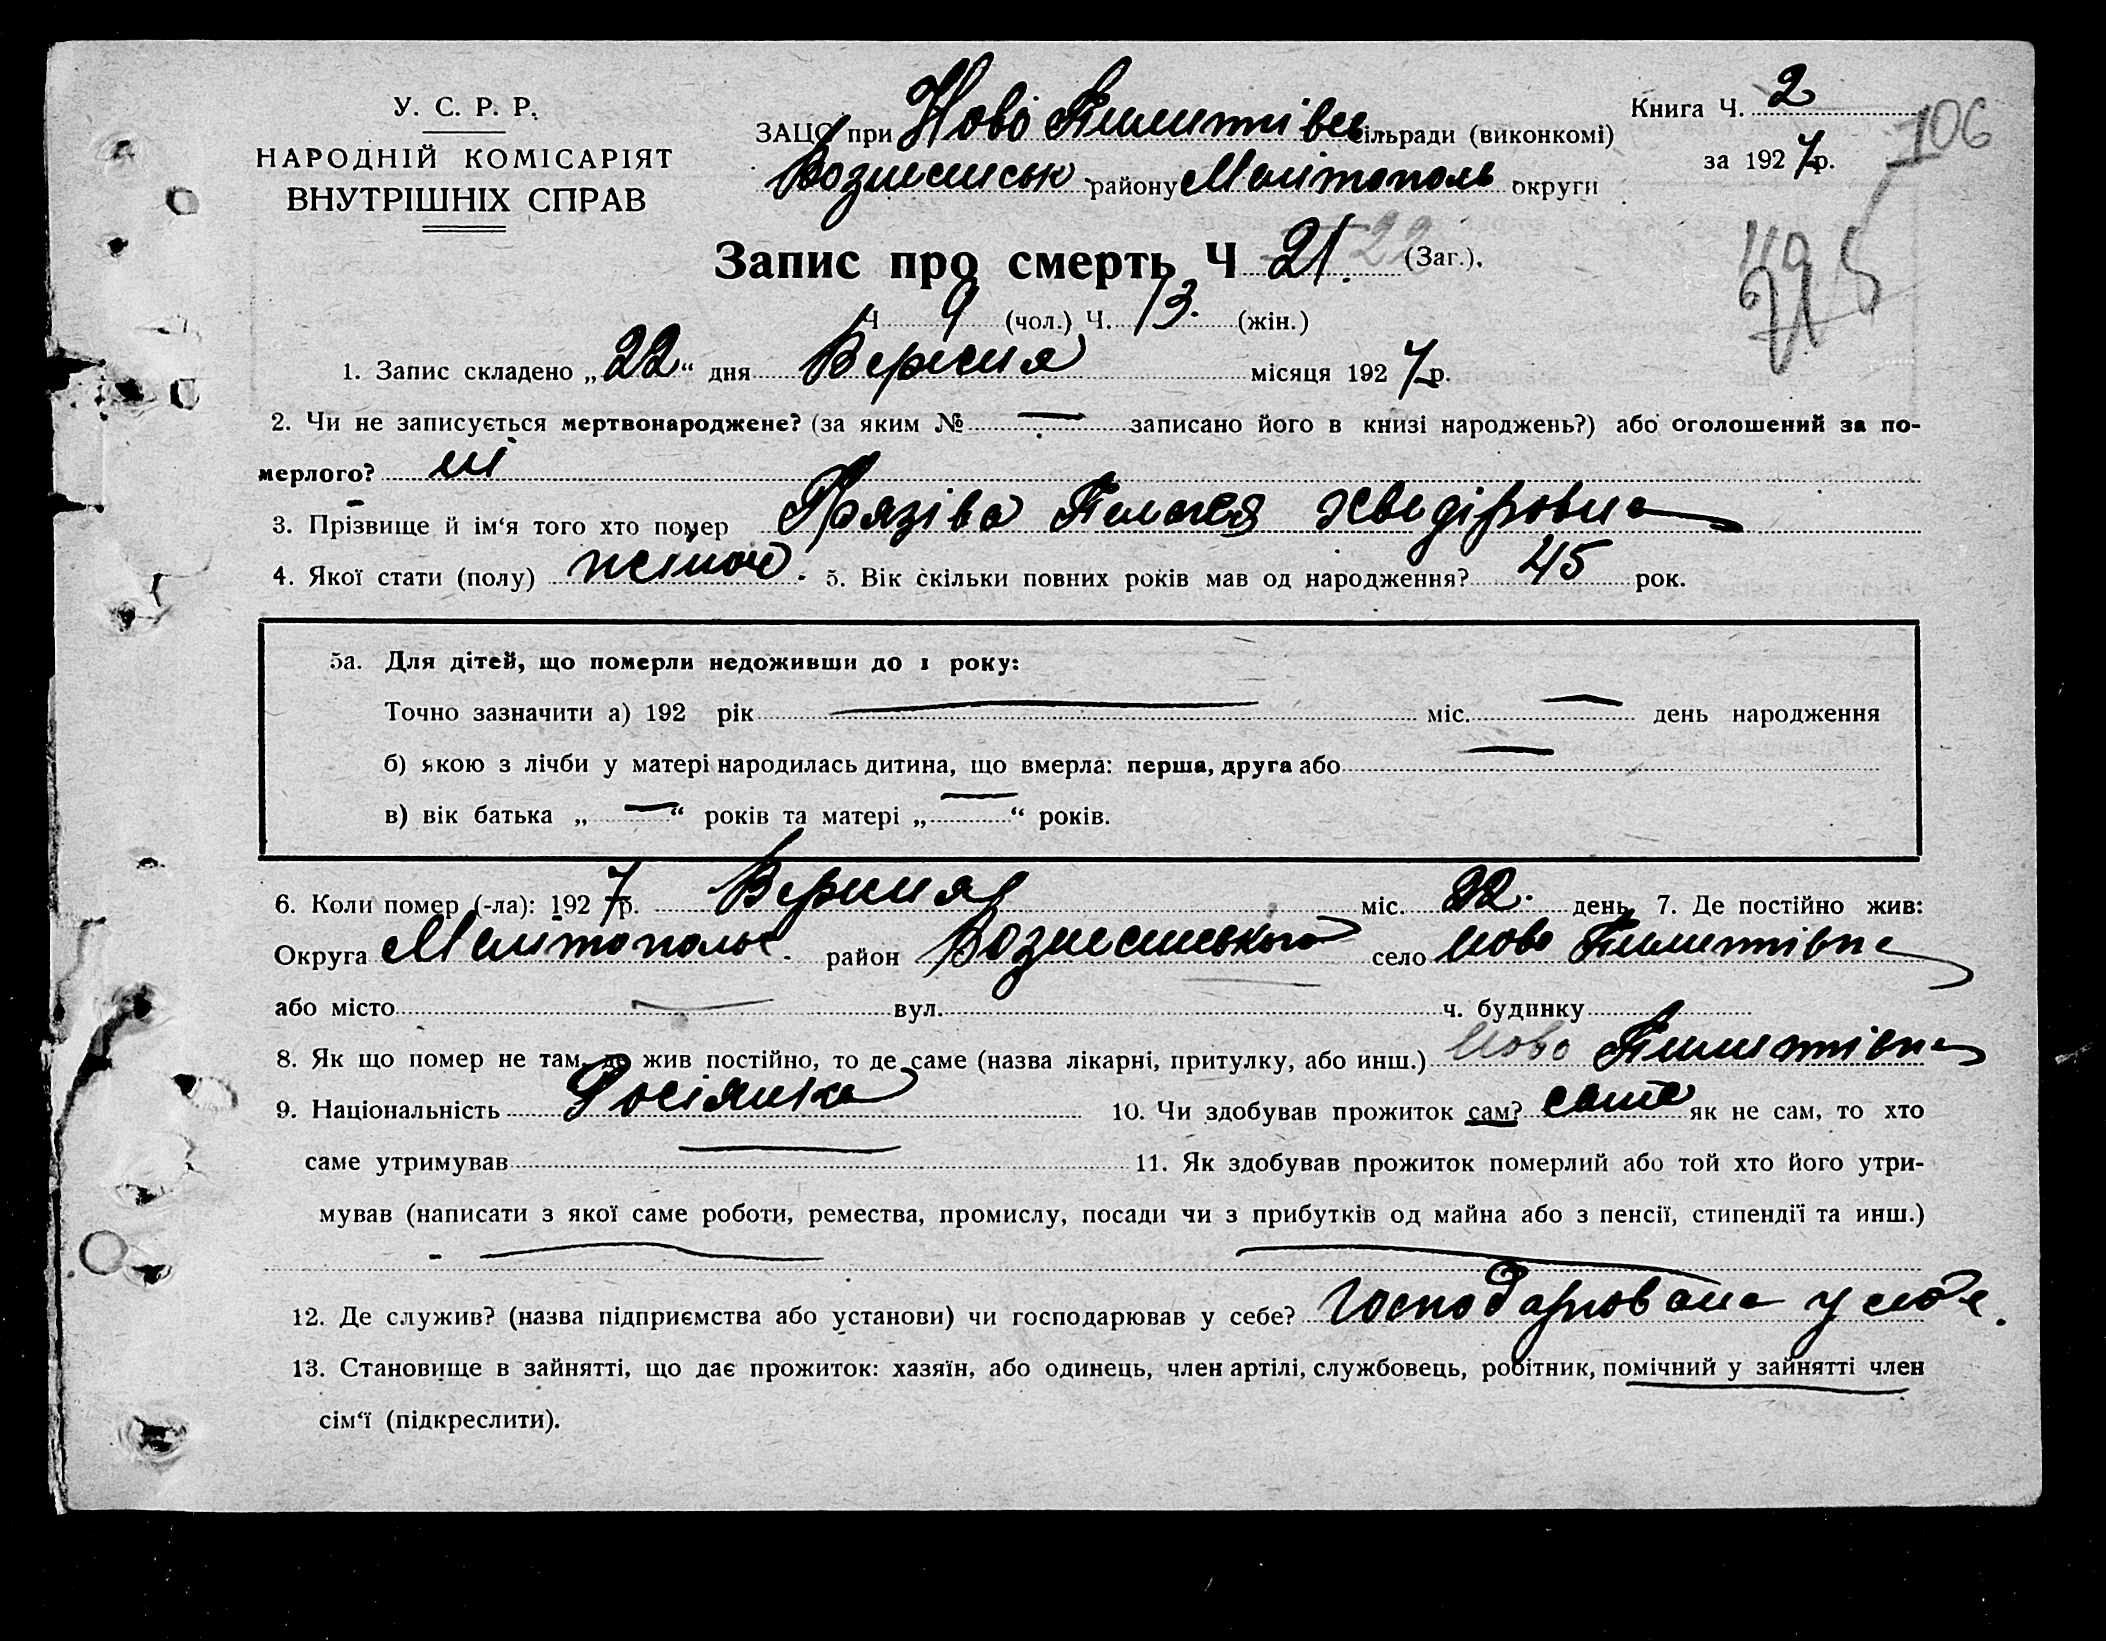 У. С. Р. Р.
НАРОДНІЙ КОМІСАРІЯТ
ВНУТРІШНІХ СПРАВ
ЗАЦС при Ново Пилипівсь сільради (виконкомі)
Вознесенськ району Мелітополь округи
Книга Ч. 2
за 1927 р.
106
Запис про смерть Ч 21. 22 (Заг.).
Ч 9 (чол.) Ч. 13. (жін.)
1. Запис складено „22“ дня Вересня місяця 1927 р.
2. Чи не записується мертвонароджене? (за яким № — записано його в книзі народжень?) або оголошений за по-
мерлого? ні
3. Прізвище й ім‘я того хто помер Грязіва Пелагея Хведіровна
4. Якої стати (полу) жіноч. 5. Вік скільки повних років мав од народження? 45 рок.
5а. Для дітей, що померли недоживши до 1 року:
Точно зазначити а) 192 рік — міс. — день народження
б) якою з лічби у матері народилась дитина, що вмерла: перша, друга або —
в) вік батька „—“ років та матері „—“ років.
6. Коли помер (-ла): 1927 р. Вересня міс. 22. день, 7. Де постійно жив:
Округа Мелітопольс. район Вознесенського село Ново Пилипівка
або місто — вул. ч. будинку
8. Як що помер не там, де жив постійно, то де саме (назва лікарні, притулку, або инш.) Ново Пилипівка
9. Національність Росіянка 10. Чи здобував прожиток сам? сама як не сам, то хто
саме утримував — 11. Як здобував прожиток померлий або той хто його утри-
мував (написати з якої саме роботи, ремества, промислу, посади чи з прибутків од майна або з пенсії, стипендії та инш.)
12. Де служив? (назва підприємства або установи) чи господарював у себе? господарювала у себе.
13. Становище в зайнятті, що дає прожиток: хазяїн, або одинець, член артілі, службовець, робітник, помічний у зайнятті член
сім‘ї (підкреслити).